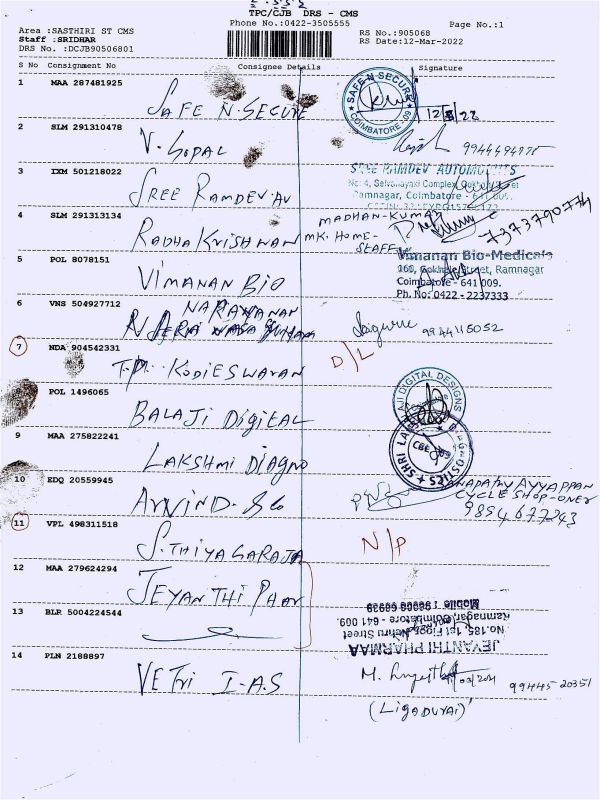 TPC/CJB DRS - CMS
Phone No.:0422-3505555
Page No.:1
Area :SASTHIRI ST CMS
Staff :SRIDHAR
DRS No. :DCJB90506801
RS No.:905068
RS Date:12-Mar-2022
S No Consignment No Consignee Details Signature
1 MAA 287481925
SAFE N. SECURE
SAFE N SECURE
COIMBATORE
2 SLM 291310478
V. GOPAL
3 IXM 501218022
SREE RAMDEV AU
SREE RAMDEV AUTOMOTIVES
Ramnagar, Coimbatore - 641 009.
4 SLM 291313134
RADHA KRISHNAN
MADHAN-KUMAR
MK. HOME-
STAFF
7373790774
5 POL 8078151
VIMANAN BIO
Vimanan Bio-Medicals
160, Gokhale Street, Ramnagar
Coimbatore - 641 009.
Ph. No: 0422 - 2237333
6 VNS 504927712
NARAYANAN
9944115052
7 NDA 904542331
KODIESWARAN
D/L
POL 1496065
BALAJI DIGITAL
AJI DIGITAL DESIGNS
9 MAA 275822241
LAKSHMI DIAGNO
10 EDQ 20559945
ARVIND. & Co
GANAPATHY AYYAPPAN
CYCLE SHOP-ONER
11 VPL 498311518
S. THIYAGARAJA
N/P
12 MAA 279624294
JEYANTHI PHAR
13 BLR 5004224544
JEYANTHI PHARMAA
No.185, 1st Floor, Nehru Street
Ramnagar, Coimbatore - 641 009.
14 PLN 2188897
VETRI I.A.S
99445 20351
(LIGADURAI)